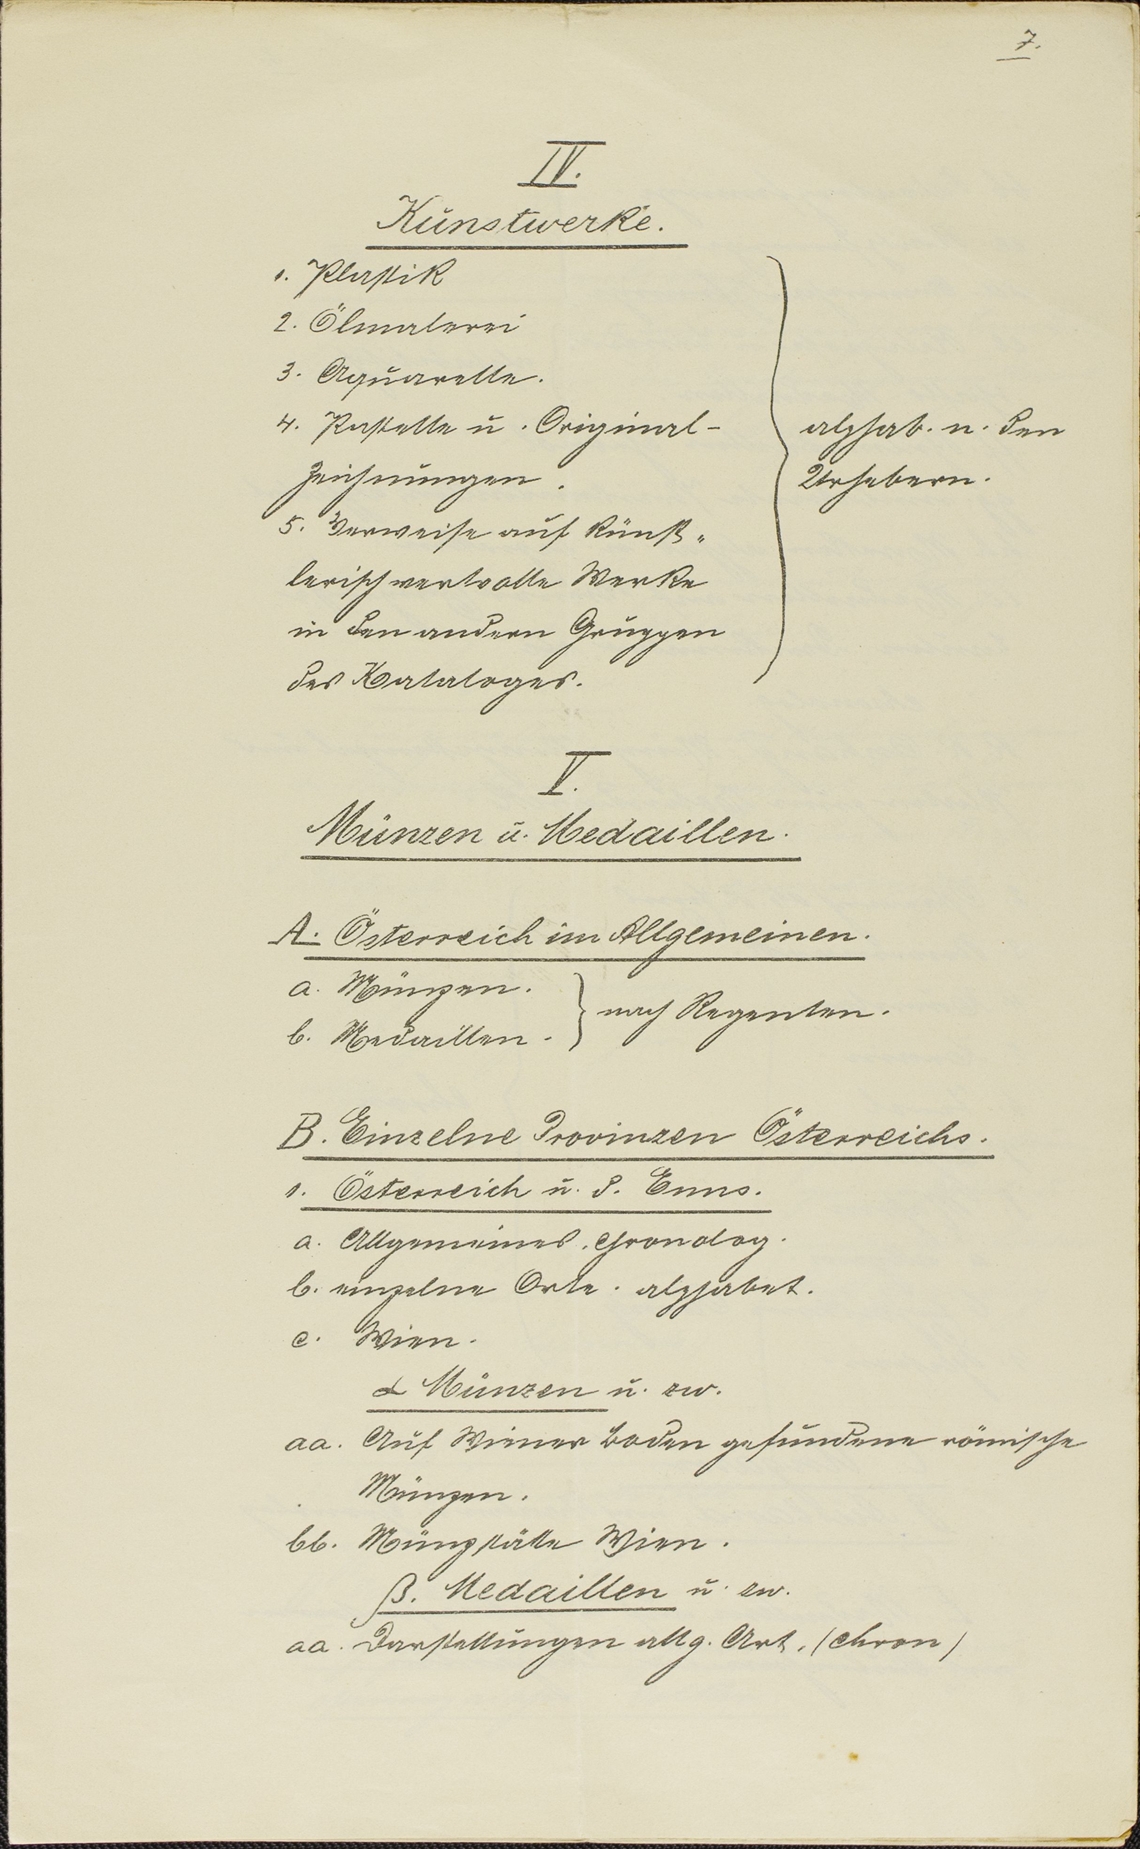 7.
IV.
Kunstwerke.
1. Plastik
2. Ölmalerei
3. Aquarelle.
4. Pastelle u. Original-
zeichnungen.
5. Verweise auf künst-
lerisch wertvolle Werke
in den andern Gruppen
des Kataloges.
alphab. n. den
Urhebern.
V.
Münzen u. Medaillen.
A. Österreich im Allgemeinen.
a. Münzen.
b. Medaillen.
nach Regenten.
B. Einzelne Provinzen Österreichs.
1. Österreich u. d. Enns.
a. Allgemeines. chronolog.
b. einzelne Orte. alphabet.
c. Wien.
α Münzen u. zw.
aa. Auf Wiener Boden gefundene römische
Münzen.
bb. Münzstätte Wien.
β. Medaillen u. zw.
aa. Darstellungen allg. Art. (chron)